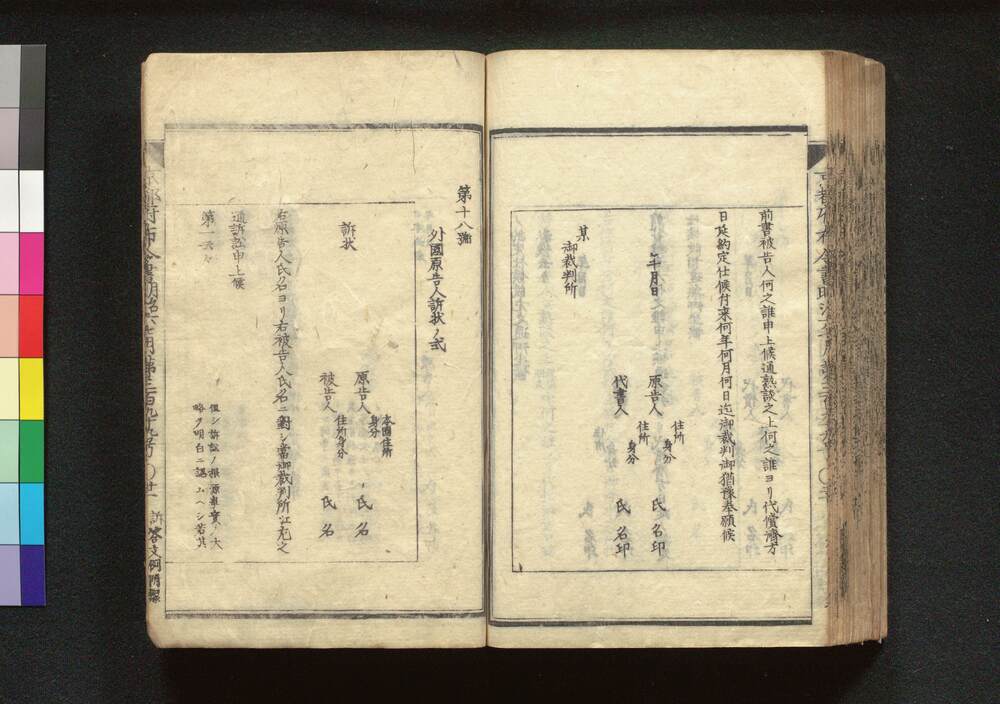 前書被告人何之誰申上候通熟談之上何之誰ヨリ代償濟方
日延約定仕候付来何年何月何日迄御裁判御猶豫奉願候
住所
原告人 身分 氏名印
住所
代書人 身分 氏名印
年月日
某
御裁判所
第十八號
外國原告人訴状ノ式
本國住所
原告人 身分 氏名
住所身分
被告人 氏名
訴状
右原告人氏名ヨリ右被告人氏名ニ對シ當御裁判所ニ充之
通訴訟申上候
第一云々
但シ訴訟ノ根源事實ノ大
略ヲ明白ニ認ムヘシ若其
京都府布令書明治六七月第三百九十九号 〇廿一 訴答文例附録